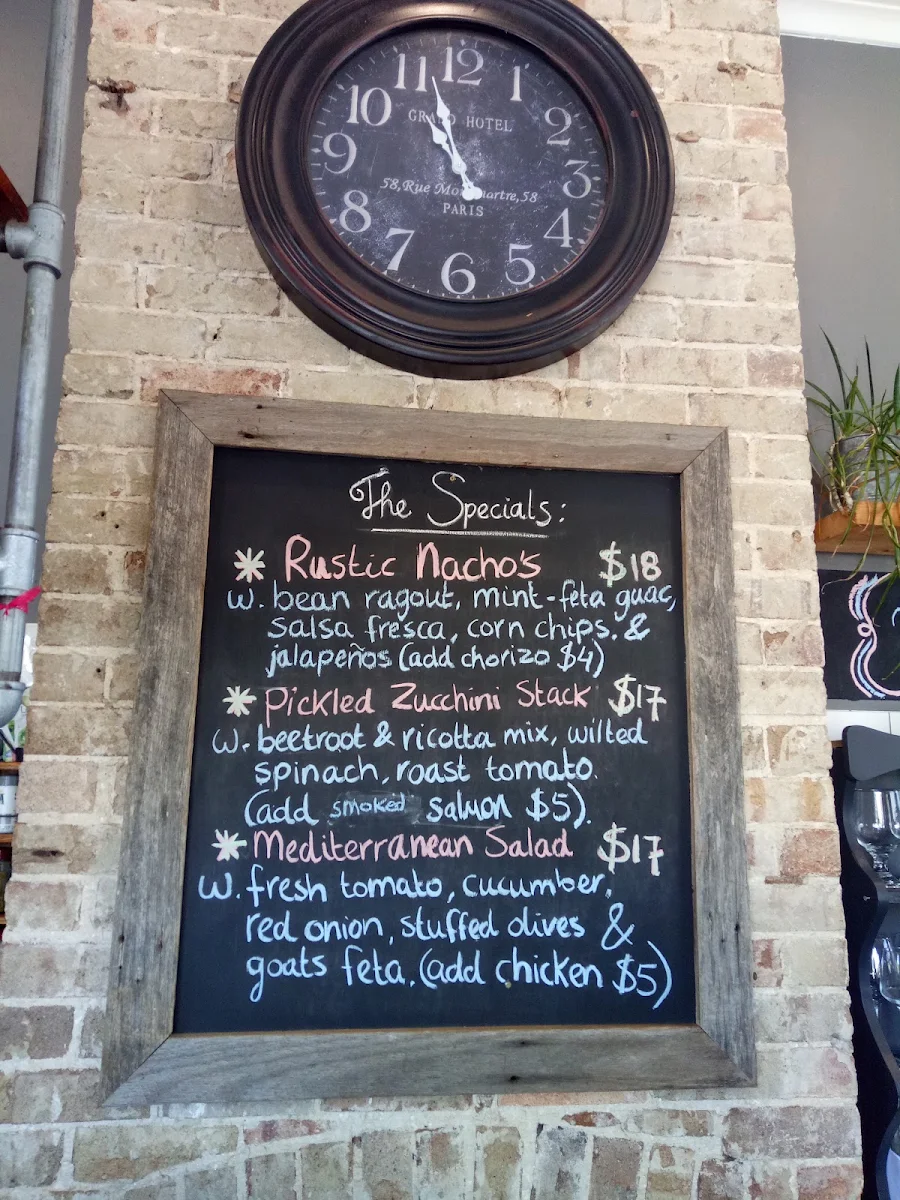 11 12 1
10 2
GRAND HOTEL
9 3
58, Rue Montmartre, 58
8 PARIS 4
7 6 5
The Specials:
* Rustic Nacho's $18
w. bean ragout, mint-feta guac,
salsa fresca, corn chips, &
jalapeños (add chorizo $4)
* Pickled Zucchini Stack $17
w. beetroot & ricotta mix, wilted
spinach, roast tomato.
(add smoked salmon $5).
* Mediterranean Salad $17
w. fresh tomato, cucumber,
red onion, stuffed olives &
goats feta. (add chicken $5)